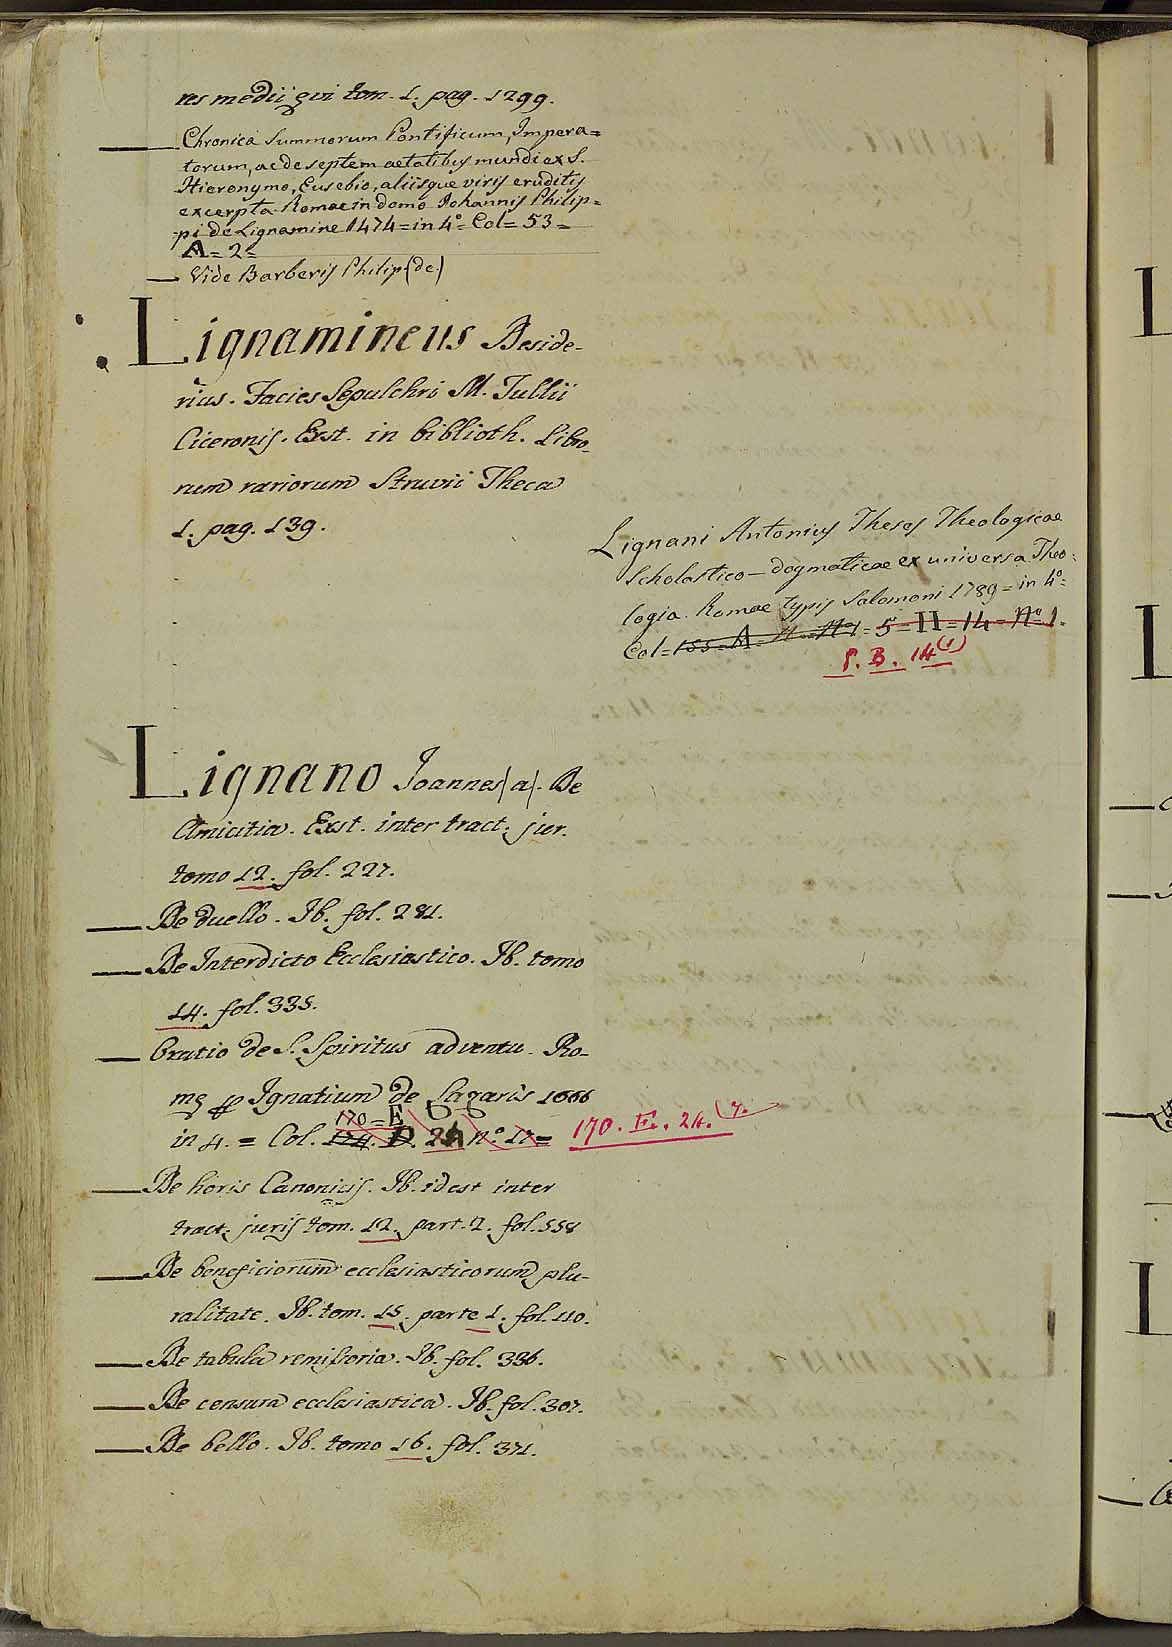 res medii ęvi tom. 1. pag. 1299.
— Chronica Summorum Pontificum, Impera=
torum, ac de septem aetatibus mundi ex S.
Hieronymo, Eusebio, aliisque viris eruditis
excerpta. Romae in domo Johannis Philip=
pi de Lignamine 1474 = in 4° = Col = 53 =
A = 2 =
— Vide Barberis Philip (de)
Lignamineus Deside-
rius. Facies Sepulchri M. Tullii
Ciceronis. Exst. in biblioth. Libro-
rum rariorum Struvii Theca
1. pag. 139.
Lignani Antonius Theses Theologicae
Scholastico-dogmaticae ex universa Theo=
logia. Romae Typis Salomoni 1789 = in 4° =
Col = 155 = A = N° 1 = 5 = H = 14 = N° 1.
P. B. 14 (1)
Lignano Joannes (a). De
Amicitia. Exst. inter tract. jur.
tomo 12. fol. 227.
— De duello. Ib. fol. 281.
— De Interdicto Ecclesiastico. Ib. tomo
14. fol. 335.
— Oratio de S. Spiritus adventu. Ro-
mę per Ignatium de Lazaris 1666
170 = E
in 4. = Col. 174. D. 24 n° 17 = 170. E. 24. (7.
— De horis Canonicis. Ib. idest inter
tract. juris tom. 12. part. 2. fol. 558
— De beneficiorum ecclesiasticorum plu-
ralitate. Ib. tom. 15. parte 1. fol. 110.
— De tabula remissoria. Ib. fol. 336.
— De censura ecclesiastica. Ib. fol. 307.
— De bello. Ib. tomo 16. fol. 371.